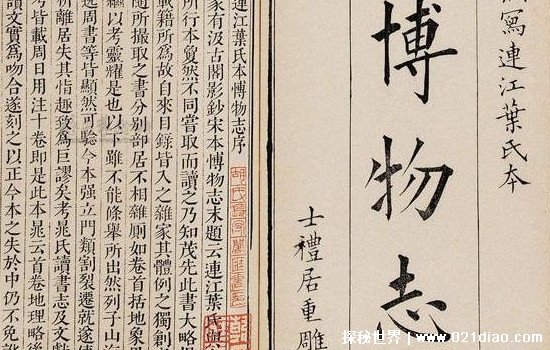 寫連江葉氏本
博物志
士禮居重雕
連江葉氏本博物志序
家有汲古閣影鈔宋本博物志末題云連江葉氏與
所行本敻然不同嘗取而讀之乃知茂先此書大略
載籍所為故自來目錄皆入之雜家其體例之獨創
隨所撮取之書分別部居不相雜厠如卷首括地象
繼以考靈耀是也以下雖不能條舉所出然列子山海
逸周書等皆顯然可驗今本强立門類割裂遷就遂使
析離居失其情趣致為巨謬矣考晁氏讀書志及文
考皆載周日用注十卷即是此本晁云首卷地理略後
讀文實為吻合遂刻之以正今本之失於中仍不免
探秘世界|www.021diao.com